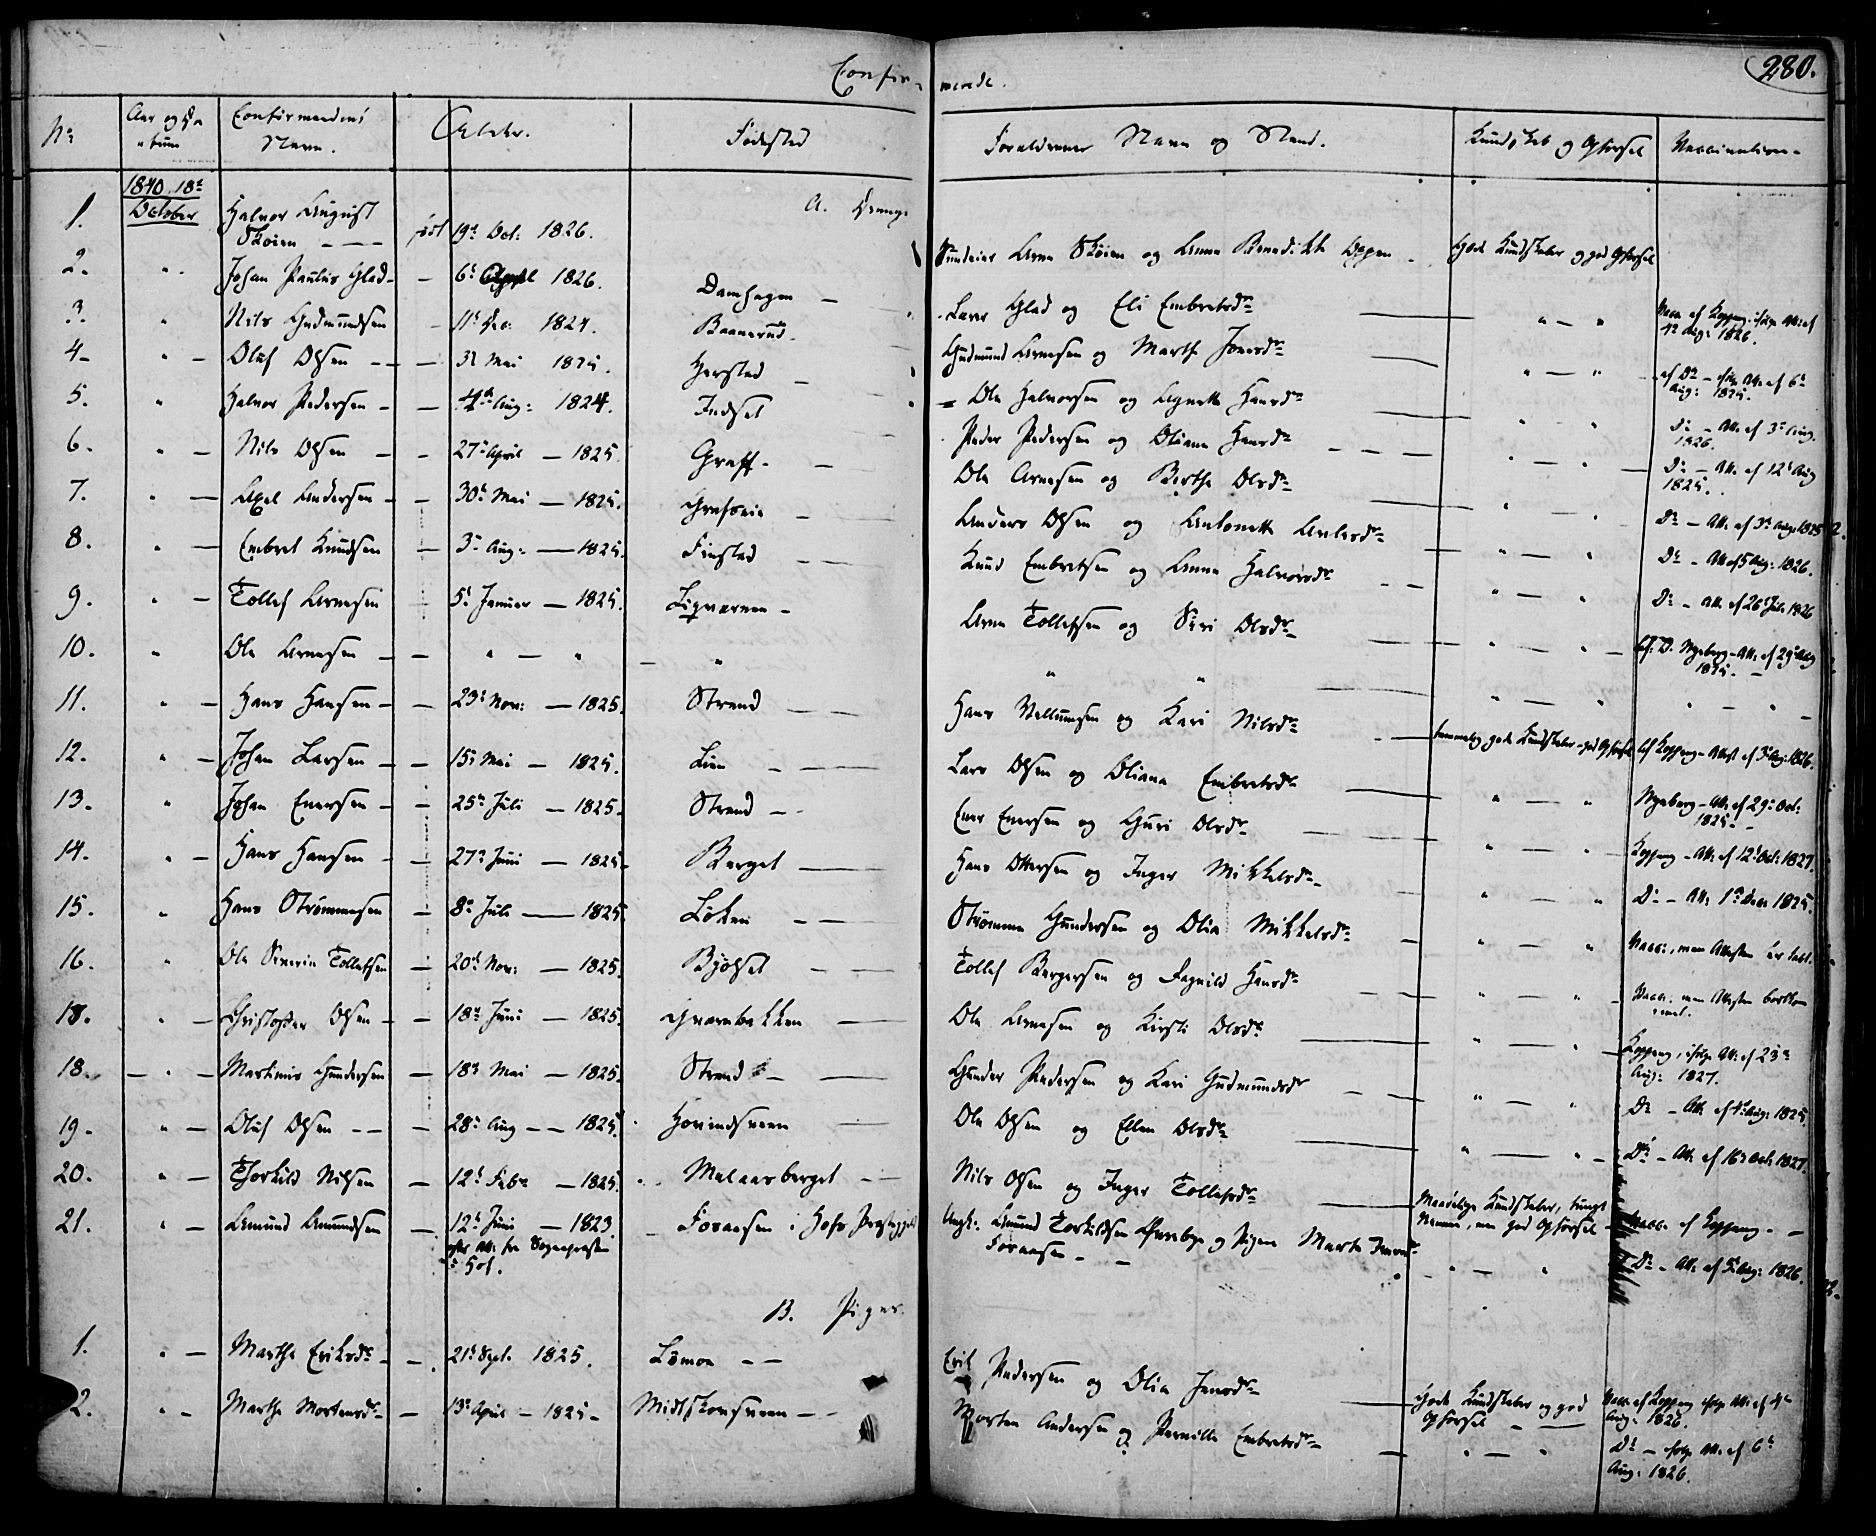 Confir-
merede.
280.
No
Aar og Da-
tum
Confirmandens
Navn.
Alder.
Fødested
Forældrenes Navn og Stand.
Kundskab og Opførsel
Vaccination.
1840. 18de
October
A. Drenge
1. Halvor August
Skøien — født 19de Oct: 1826.
Arne Skøien og Anna Benedikte
Gode Kundskaber og god Opførsel
2. " Johan Paulus Glad — 6te April 1826. Damhagen —
Lars Glad og Eli Embretsdr
" — "
Vacc. af Koppang ifølge Att: af
4de Aug: 1826.
3. " Nils Gudmundsen — 11te Dec. 1824. Baanerud.
Gudmund Arnesen og Marthe Jonsdr
" — "
af Do — ifølge Att. af 6te
Aug: 1825.
4. " — Oluf Olsen — 31 Mai 1825. Hersted —
Ole Halvorsen og Agnette Hansdr
" — "
Do — Att. af 3de Aug.
1826.
5. " Halvor Pedersen — 4de Aug: 1824. Indset
Peder Pedersen og Oliana Hansdr
" — "
Do — Att. af 12te Aug
1825.
6. " — Nils Olsen — 27de April — 1825. Graff —
Ole Arnesen og Berthe Olsdr
" — "
Do — Att. af 3de Aug: 1825
7. " — Axel Andersen — 30te Mai — 1825.
Anders Olsen og Antonette
" — "
Do — Att. af 5 Aug: 1826.
8. " — Embret Knudsen — 3de Aug: — 1825. Finstad —
Knud Embretsen og Anna Halvorsdr
" — "
Do — Att. af 26 Juli 1826
9. " — Tollef Arnesen 5te Januar — 1825.
Arne Tollefsen og Siri Olsdr
" — "
af D. Nyeborg — Att. af 29de Aug
1825. —
10. " Ole Arnesen — " — " — "
" "
" — "
" — " —
11. " — Hans Hansen — 23de Nov: — 1825. Strand —
Hans og Kari Nilsdr
temmelig gode Kundskaber — god Opførsel
af Koppang — Attest af 3de Aug: 1826.
12. " — Johan Larsen — 15de Mai — 1825. Lien —
Lars Olsen og Oliana Embretsdr
" — "
Nyeborg — Att. af 29de Oct:
1825. —
13. " Johan Enersen — 25de Juli — 1825. Strand —
Ener Enersen og Guri Olsdr
" — "
Koppang — Att. af 12te Oct: 1827.
14. " — Hans Hansen — 27de Juni — 1825. Berget —
Hans Ottersen og Inger Mikkelsdr
" — "
Do — Att. 1ste Dec. 1825.
15. " Hans Strømmesen — 8de Juli — 1825. Løken —
Strømme Gundersen og Olia Mikkelsdr
" — "
Vacc:, men Attesten er tabt.
16. " Ole Severin Tollefsen — 20de Nov: — 1825. Bjølset —
Tollef Bergersen og Hansdr
" — "
Vacc: men Attesten
18. " — Christopher Olsen — 18de Juni — 1825. Qværnbekken —
Ole Arnesen og Kirsti Olsdr
" — "
Koppang, ifølge Att. af 23de
Aug: 1827.
18. — " — Martinus Gundersen — 18de Mai — 1825. Strand —
Gunder Pedersen og Kari Gudmundsdr
" — "
Do — Att. af Aug: 1825.
19. " — Oluf Olsen — 28de Aug — 1825. Hovindsveen —
Ole Olsen og Ellen Olsdr
" — "
Do — Att. af 16de Oct: 1827.
20. " — Thorkild Nilsen — 12te Febr — 1825. Melaasberget —
Nils Olsen og Inger Tollefsdr
Maadelige Kundskaber, tungt
Nemme, men god Opførsel —
Vacc. af Koppang. —
21. " — Amund Amundsen — 12te Juni — 1823. Foraasen i Hofs Præstegjeld
efter Att: fra Sognepresten
i Hof.
Ungk: Amund Torkildsen og Pigen Marte
Foraasen —
" — "
Do — Att. af 5te Aug: 1826.
B. Piger.
1. " — Marthe Eriksdr — 21de Sept. 1825. Lømoe —
Erik Pedersen og Olia Jensdr
Gode Kundskaber og god
Opførsel —
Vacc. af Koppang ifølge Att. af 4de
Aug: 1826.
2. " — Marthe Mortensdr — 13de April — 1825 — Midtskovsveen —
Morten Andersen og Pernille Embretsdr
" — "
Do — ifølge Att. af 6te
Aug: 1826.